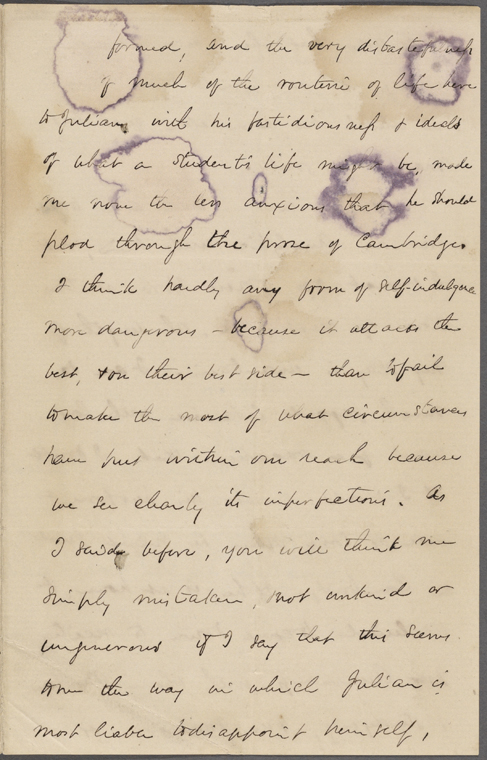 formed, and the very distastefulness
of much of the routine of life here
to Julian, with his fastidiousness & ideals
of what a student's life might be, made
me none the less anxious that he should
plod through the prose of Cambridge.
I think hardly any form of self-indulgence
more dangerous – because it attacks the
best, & on their best side – than to fail
to make the most of what circumstances
have put within our reach because
we see clearly its imperfections. As
I said before, you will think me
simply mistaken, not unkind or
ungenerous if I say that this seems
to me the way in which Julian is
most liable to disappoint himself,